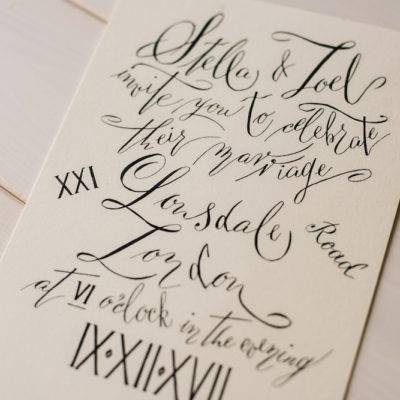 Stella & Joel
invite you to celebrate
their marriage
XXI Lonsdale Road
London
at VI o'clock in the evening
IX•XII•XVII